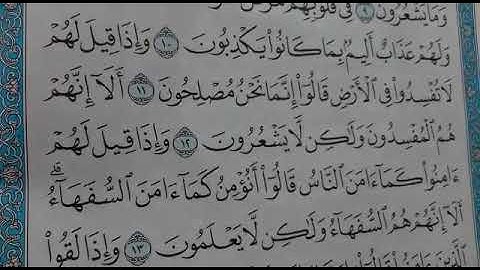 وَمَا يَشْعُرُونَ ٩ فِي قُلُوبِهِم مَّرَضٌ
وَلَهُمْ عَذَابٌ أَلِيمٌ بِمَا كَانُوا۟ يَكْذِبُونَ ١٠ وَإِذَا قِيلَ لَهُمْ
لَا تُفْسِدُوا۟ فِي ٱلْأَرْضِ قَالُوٓا۟ إِنَّمَا نَحْنُ مُصْلِحُونَ ١١ أَلَآ إِنَّهُمْ
هُمُ ٱلْمُفْسِدُونَ وَلَٰكِن لَّا يَشْعُرُونَ ١٢ وَإِذَا قِيلَ لَهُمْ
ءَامِنُوا۟ كَمَآ ءَامَنَ ٱلنَّاسُ قَالُوٓا۟ أَنُؤْمِنُ كَمَآ ءَامَنَ ٱلسُّفَهَآءُ ۗ
أَلَآ إِنَّهُمْ هُمُ ٱلسُّفَهَآءُ وَلَٰكِن لَّا يَعْلَمُونَ ١٣ وَإِذَا لَقُوا۟